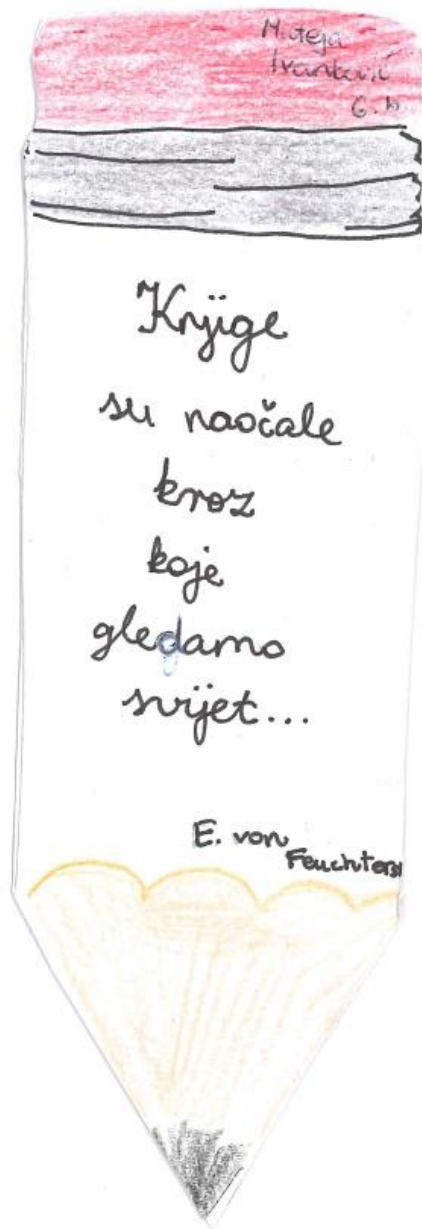 Mateja
Ivanković
6. b
Knjige
su naočale
kroz
koje
gledamo
svijet...
E. von
Feuchters